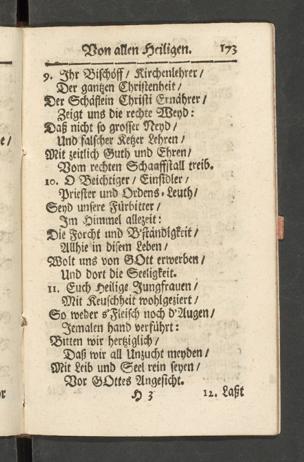 Von allen Heiligen. 173
9. Ihr Bischöff / Kirchenlehrer /
Der gantzen Christenheit /
Der Schäflein Christi Ernährer /
Zeigt uns die rechte Weyd:
Daß nicht so grosser Neyd /
Und falscher Ketzer Lehren /
Mit zeitlich Guth und Ehren /
Vom rechten Schaaffstall treib.
10. O Beichtiger / Einsidler /
Priester und Ordens-Leuth /
Seyd unsere Fürbitter /
Im Himmel allezeit:
Die Forcht und B'ständigkeit /
Allhie in disem Leben /
Wolt uns von GOtt erwerben /
Und dort die Seeligkeit.
11. Euch Heilige Jungfrauen /
Mit Keuschheit wohlgeziert /
So weder s'Fleisch noch d'Augen /
Jemalen hand verführt:
Bitten wir hertziglich /
Daß wir all Unzucht meyden /
Mit Leib und Seel rein seyen /
Vor GOttes Angesicht.
H 3 12. Laßt